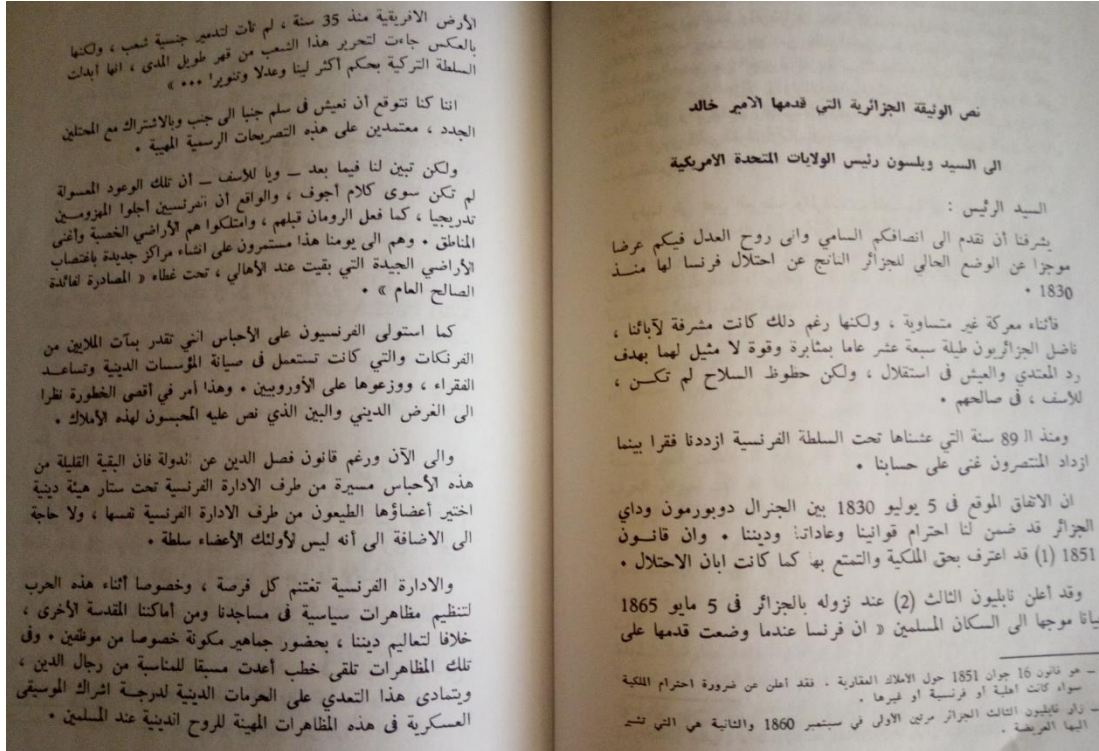 نص الوثيقة الجزائرية التي قدمها الأمير خالد
الى السيد ويلسون رئيس الولايات المتحدة الأمريكية
السيد الرئيس :
يشرفنا أن نقدم الى انصافكم السامي والى روح العدل فيكم عرضا
موجزا عن الوضع الحالي للجزائر الناتج عن احتلال فرنسا لها منــذ
1830 .
فأثناء معركة غير متساوية ، ولكنها رغم ذلك كانت مشرفة لآبائنا ،
ناضل الجزائريون طيلة سبعة عشر عاما بمثابرة وقوة لا مثيل لهما بهدف
رد المعتدي والعيش فى استقلال ، ولكن حظوظ السلاح لم تكــن ،
للأسف ، فى صالحهم .
ومنذ الـ 89 سنة التي عشناها تحت السلطة الفرنسية ازددنا فقرا بينما
ازداد المنتصرون غنى على حسابنا .
ان الاتفاق الموقع فى 5 يوليو 1830 بين الجنرال دوبورمون وداي
الجزائر قد ضمن لنا احترام قوانينا وعاداتنا وديننا . وان قانــون
1851 (1) قد اعترف بحق الملكية والتمتع بها كما كانت ابان الاحتلال .
وقد أعلن نابليون الثالث (2) عند نزوله بالجزائر فى 5 مايو 1865
بيانا موجها الى السكان المسلمين « ان فرنسا عندما وضعت قدمها على
ـ هو قانون 16 جوان 1851 حول الأملاك العقارية . فقد أعلن عن ضرورة احترام الملكية
سواء كانت أهلية أو فرنسية أو غيرها .
ـ زار نابليون الثالث الجزائر مرتين الأولى في سبتمبر 1860 والثانية هي التي تشير
اليها العريضة .
الأرض الافريقية منذ 35 سنة ، لم تأت لتدمير جنسية شعب ، ولكنها
بالعكس جاءت لتحرير هذا الشعب من قهر طويل المدى ، انها أبدلت
السلطة التركية بحكم أكثر لينا وعدلا وتنويرا ... »
اننا كنا نتوقع أن نعيش في سلم جنبا الى جنب وبالاشتراك مع المحتلين
الجدد ، معتمدين على هذه التصريحات الرسمية المهيبة .
ولكن تبين لنا فيما بعد ــ ويا للأسف ــ أن تلك الوعود المعسولة
لم تكن سوى كلام أجوف ، والواقع أن الفرنسيين أجلوا المهزومــين
تدريجيا ، كما فعل الرومان قبلهم ، وامتلكوا هم الأراضي الخصبة وأغنى
المناطق . وهم الى يومنا هذا مستمرون على انشاء مراكز جديدة باغتصاب
الأراضي الجيدة التي بقيت عند الأهالي ، تحت غطاء « المصادرة لفائدة
الصالح العام » .
كما استولى الفرنسيون على الأحباس التي تقدر بمآت الملايين من
الفرنكات والتي كانت تستعمل فى صيانة المؤسسات الدينية وتساعــد
الفقراء ، ووزعوها على الأوروبيين . وهذا أمر في أقصى الخطورة نظرا
الى الغرض الديني والبين الذي نص عليه المحبسون لهذه الأملاك .
والى الآن ورغم قانون فصل الدين عن الدولة فان البقية القليلة من
هذه الأحباس مسيرة من طرف الادارة الفرنسية تحت ستار هيئة دينية
اختير أعضاؤها الطيعون من طرف الادارة الفرنسية نفسها ، ولا حاجة
الى الاضافة الى أنه ليس لأولئك الأعضاء سلطة .
والادارة الفرنسية تغتنم كل فرصة ، وخصوصا أثناء هذه الحرب
لتنظيم مظاهرات سياسية فى مساجدنا ومن أماكننا المقدسة الأخرى ،
خلافا لتعاليم ديننا ، بحضور جماهير مكونة خصوصا من موظفين . وفى
تلك المظاهرات تلقى خطب أعدت مسبقا للمناسبة من رجال الدين ،
ويتمادى هذا التعدي على الحرمات الدينية لدرجــة اشراك الموسيقى
العسكرية فى هذه المظاهرات المهينة للروح الدينية عند المسلمين .